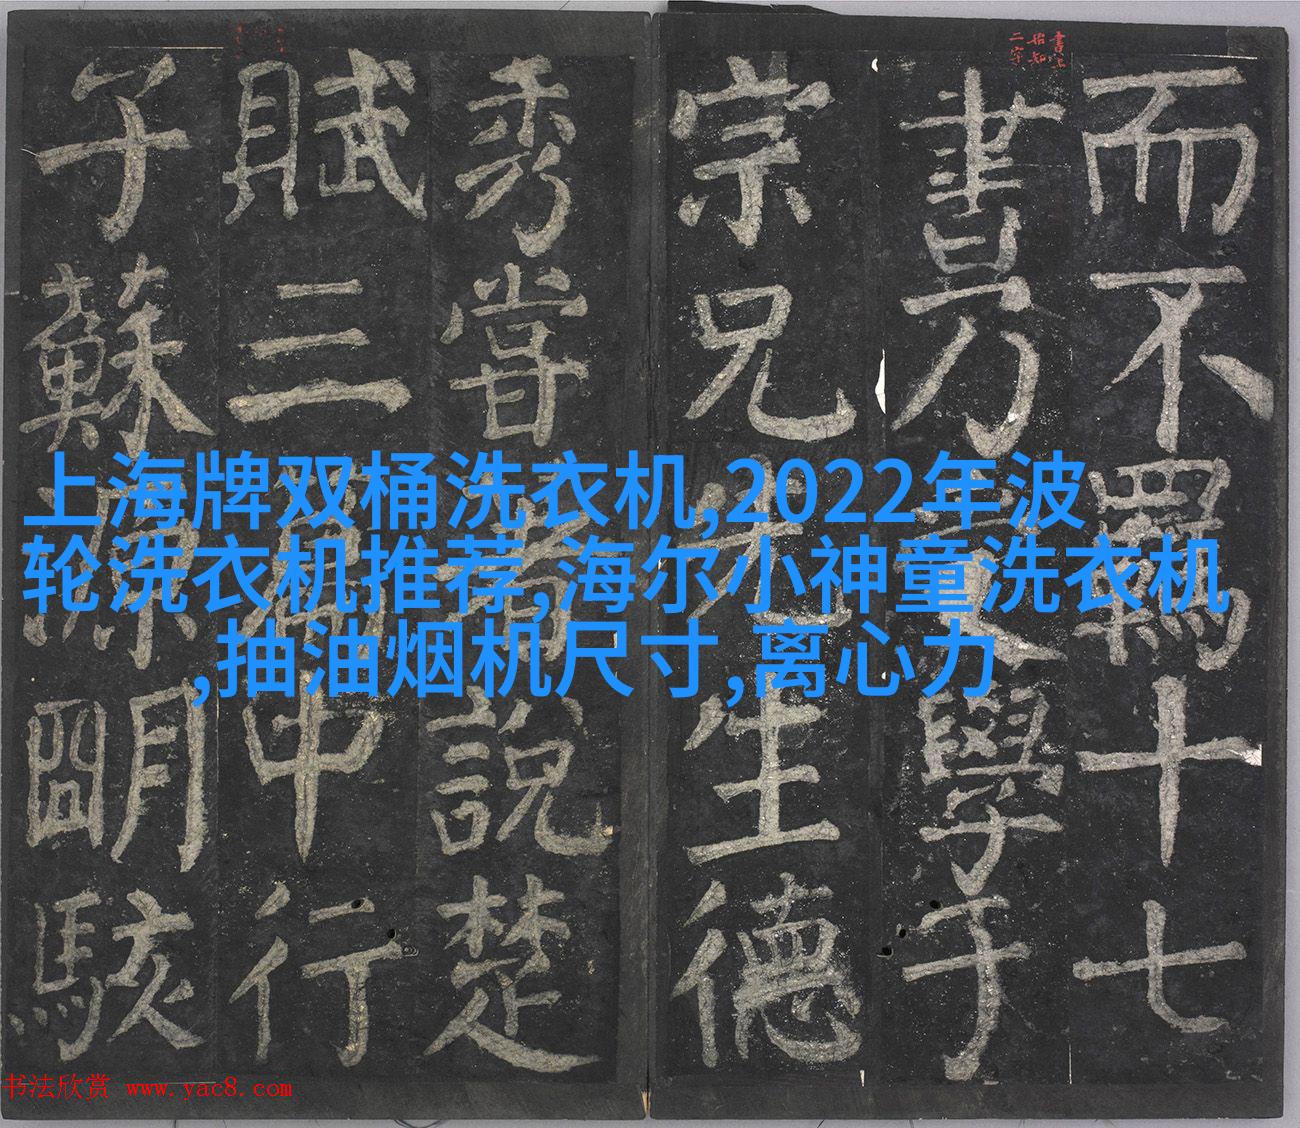 上海牌双桶洗衣机,2022年波
轮洗衣机推荐,海尔小神童洗衣机
,抽油烟机尺寸,离心力
書上
始知
二字
而不羈十七
書乃受學于
宗兄先生德
秀嘗著說楚
賦三篇中行
子蘇源明駭
书法欣赏 www.yac8.com